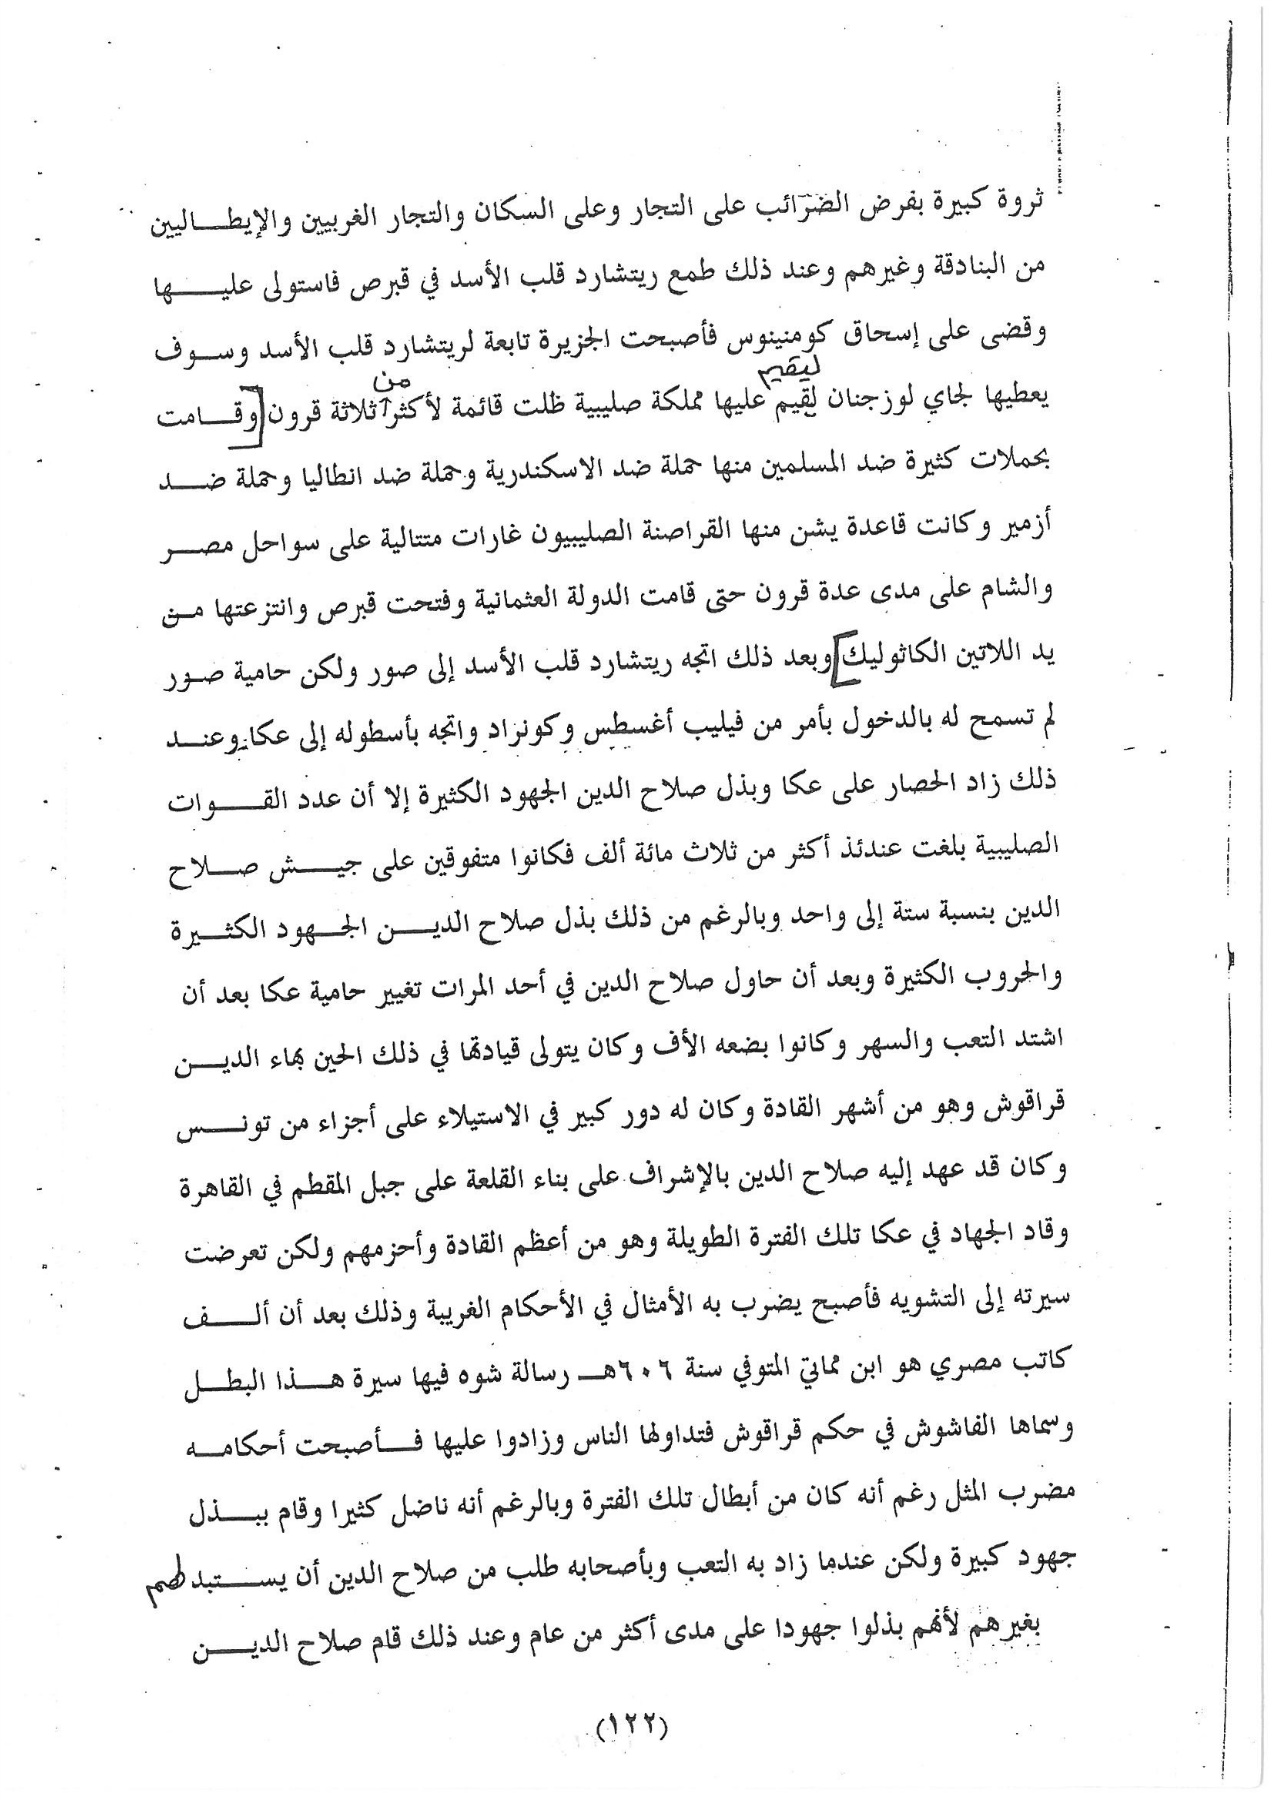 ثروة كبيرة بفرض الضرائب على التجار وعلى السكان والتجار الغربيين والإيطاليين
من البنادقة وغيرهم وعند ذلك طمع ريتشارد قلب الأسد في قبرص فاستولى عليها
وقضى على إسحاق كومنينوس فأصبحت الجزيرة تابعة لريتشارد قلب الأسد وسوف
ليقيم من
يعطيها لجاي لوزجنان لقيم عليها مملكة صليبية ظلت قائمة لأكثر ثلاثة قرون [وقامت
بحملات كثيرة ضد المسلمين منها حملة ضد الاسكندرية وحملة ضد انطاليا وحملة ضد
أزمير وكانت قاعدة يشن منها القراصنة الصليبيون غارات متتالية على سواحل مصر
والشام على مدى عدة قرون حتى قامت الدولة العثمانية وفتحت قبرص وانتزعتها من
يد اللاتين الكاثوليك] وبعد ذلك اتجه ريتشارد قلب الأسد إلى صور ولكن حامية صور
لم تسمح له بالدخول بأمر من فيليب أغسطس وكونراد واتجه بأسطوله إلى عكا وعند
ذلك زاد الحصار على عكا وبذل صلاح الدين الجهود الكثيرة إلا أن عدد القوات
الصليبية بلغت عندئذ أكثر من ثلاث مائة ألف فكانوا متفوقين على جيش صلاح
الدين بنسبة ستة إلى واحد وبالرغم من ذلك بذل صلاح الدين الجهود الكثيرة
والحروب الكثيرة وبعد أن حاول صلاح الدين في أحد المرات تغيير حامية عكا بعد أن
اشتد التعب والسهر وكانوا بضعه الأف وكان يتولى قيادتها في ذلك الحين بهاء الدين
قراقوش وهو من أشهر القادة وكان له دور كبير في الاستيلاء على أجزاء من تونس
وكان قد عهد إليه صلاح الدين بالإشراف على بناء القلعة على جبل المقطم في القاهرة
وقاد الجهاد في عكا تلك الفترة الطويلة وهو من أعظم القادة وأحزمهم ولكن تعرضت
سيرته إلى التشويه فأصبح يضرب به الأمثال في الأحكام الغريبة وذلك بعد أن ألف
كاتب مصري هو ابن مماتي المتوفي سنة ٦٠٦هـ رسالة شوه فيها سيرة هذا البطل
وسماها الفاشوش في حكم قراقوش فتداولها الناس وزادوا عليها فأصبحت أحكامه
مضرب المثل رغم أنه كان من أبطال تلك الفترة وبالرغم أنه ناضل كثيرا وقام ببذل
جهود كبيرة ولكن عندما زاد به التعب وبأصحابه طلب من صلاح الدين أن يستبدلهم
بغيرهم لأنهم بذلوا جهودا على مدى أكثر من عام وعند ذلك قام صلاح الدين
(١٢٢)